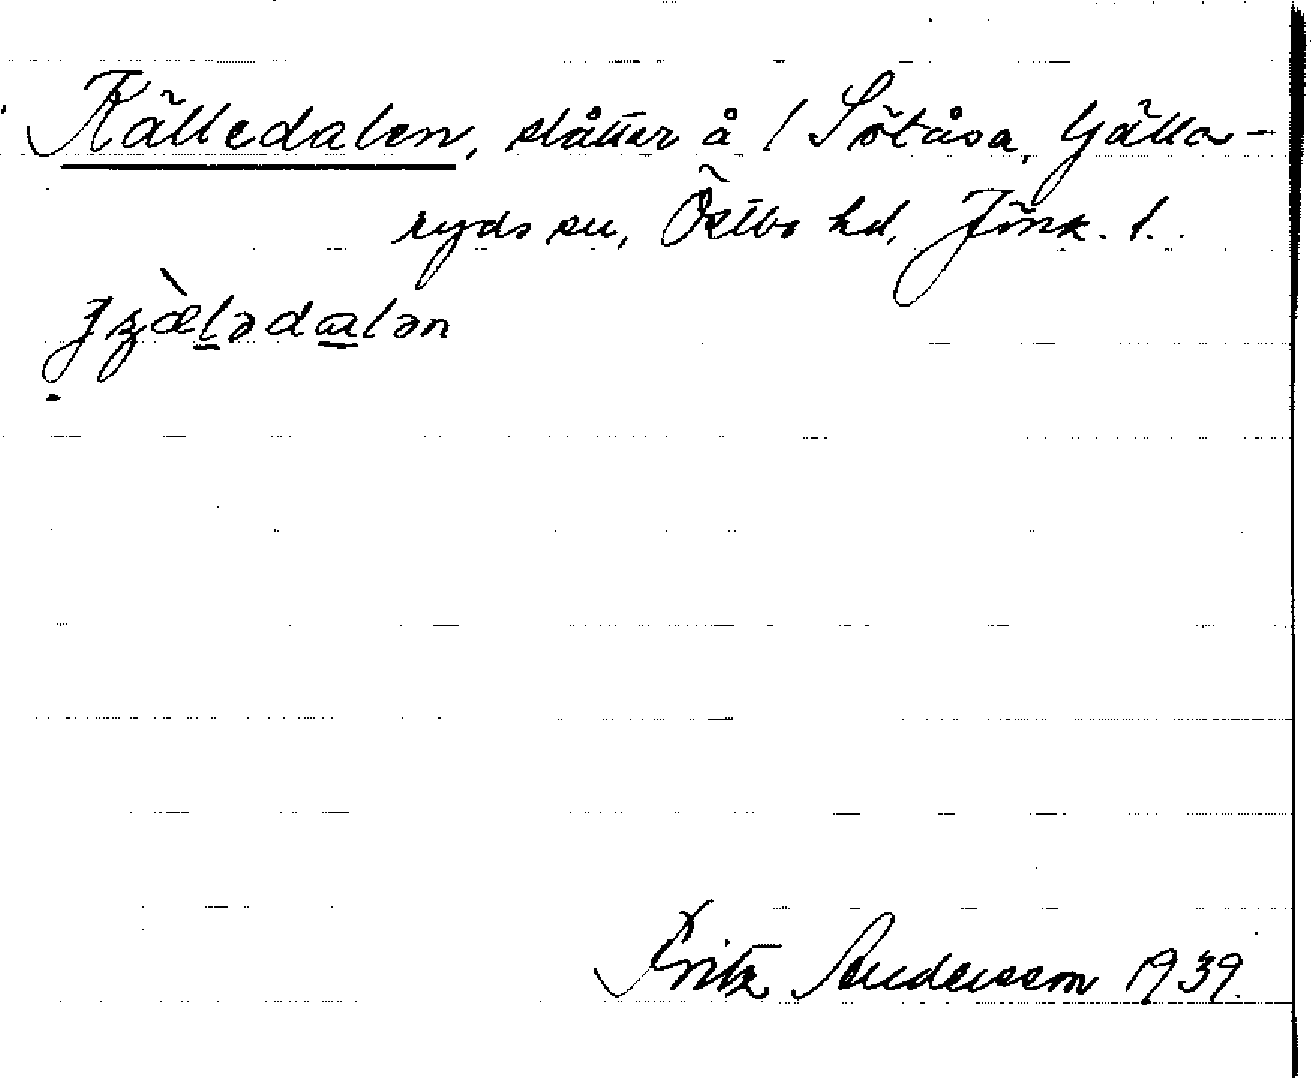 Källedalen, slåtter å / Sötåsa, Gälla-
ryds sn, Östbo hd, Jönk. l.
Fritz Andersson 1939.